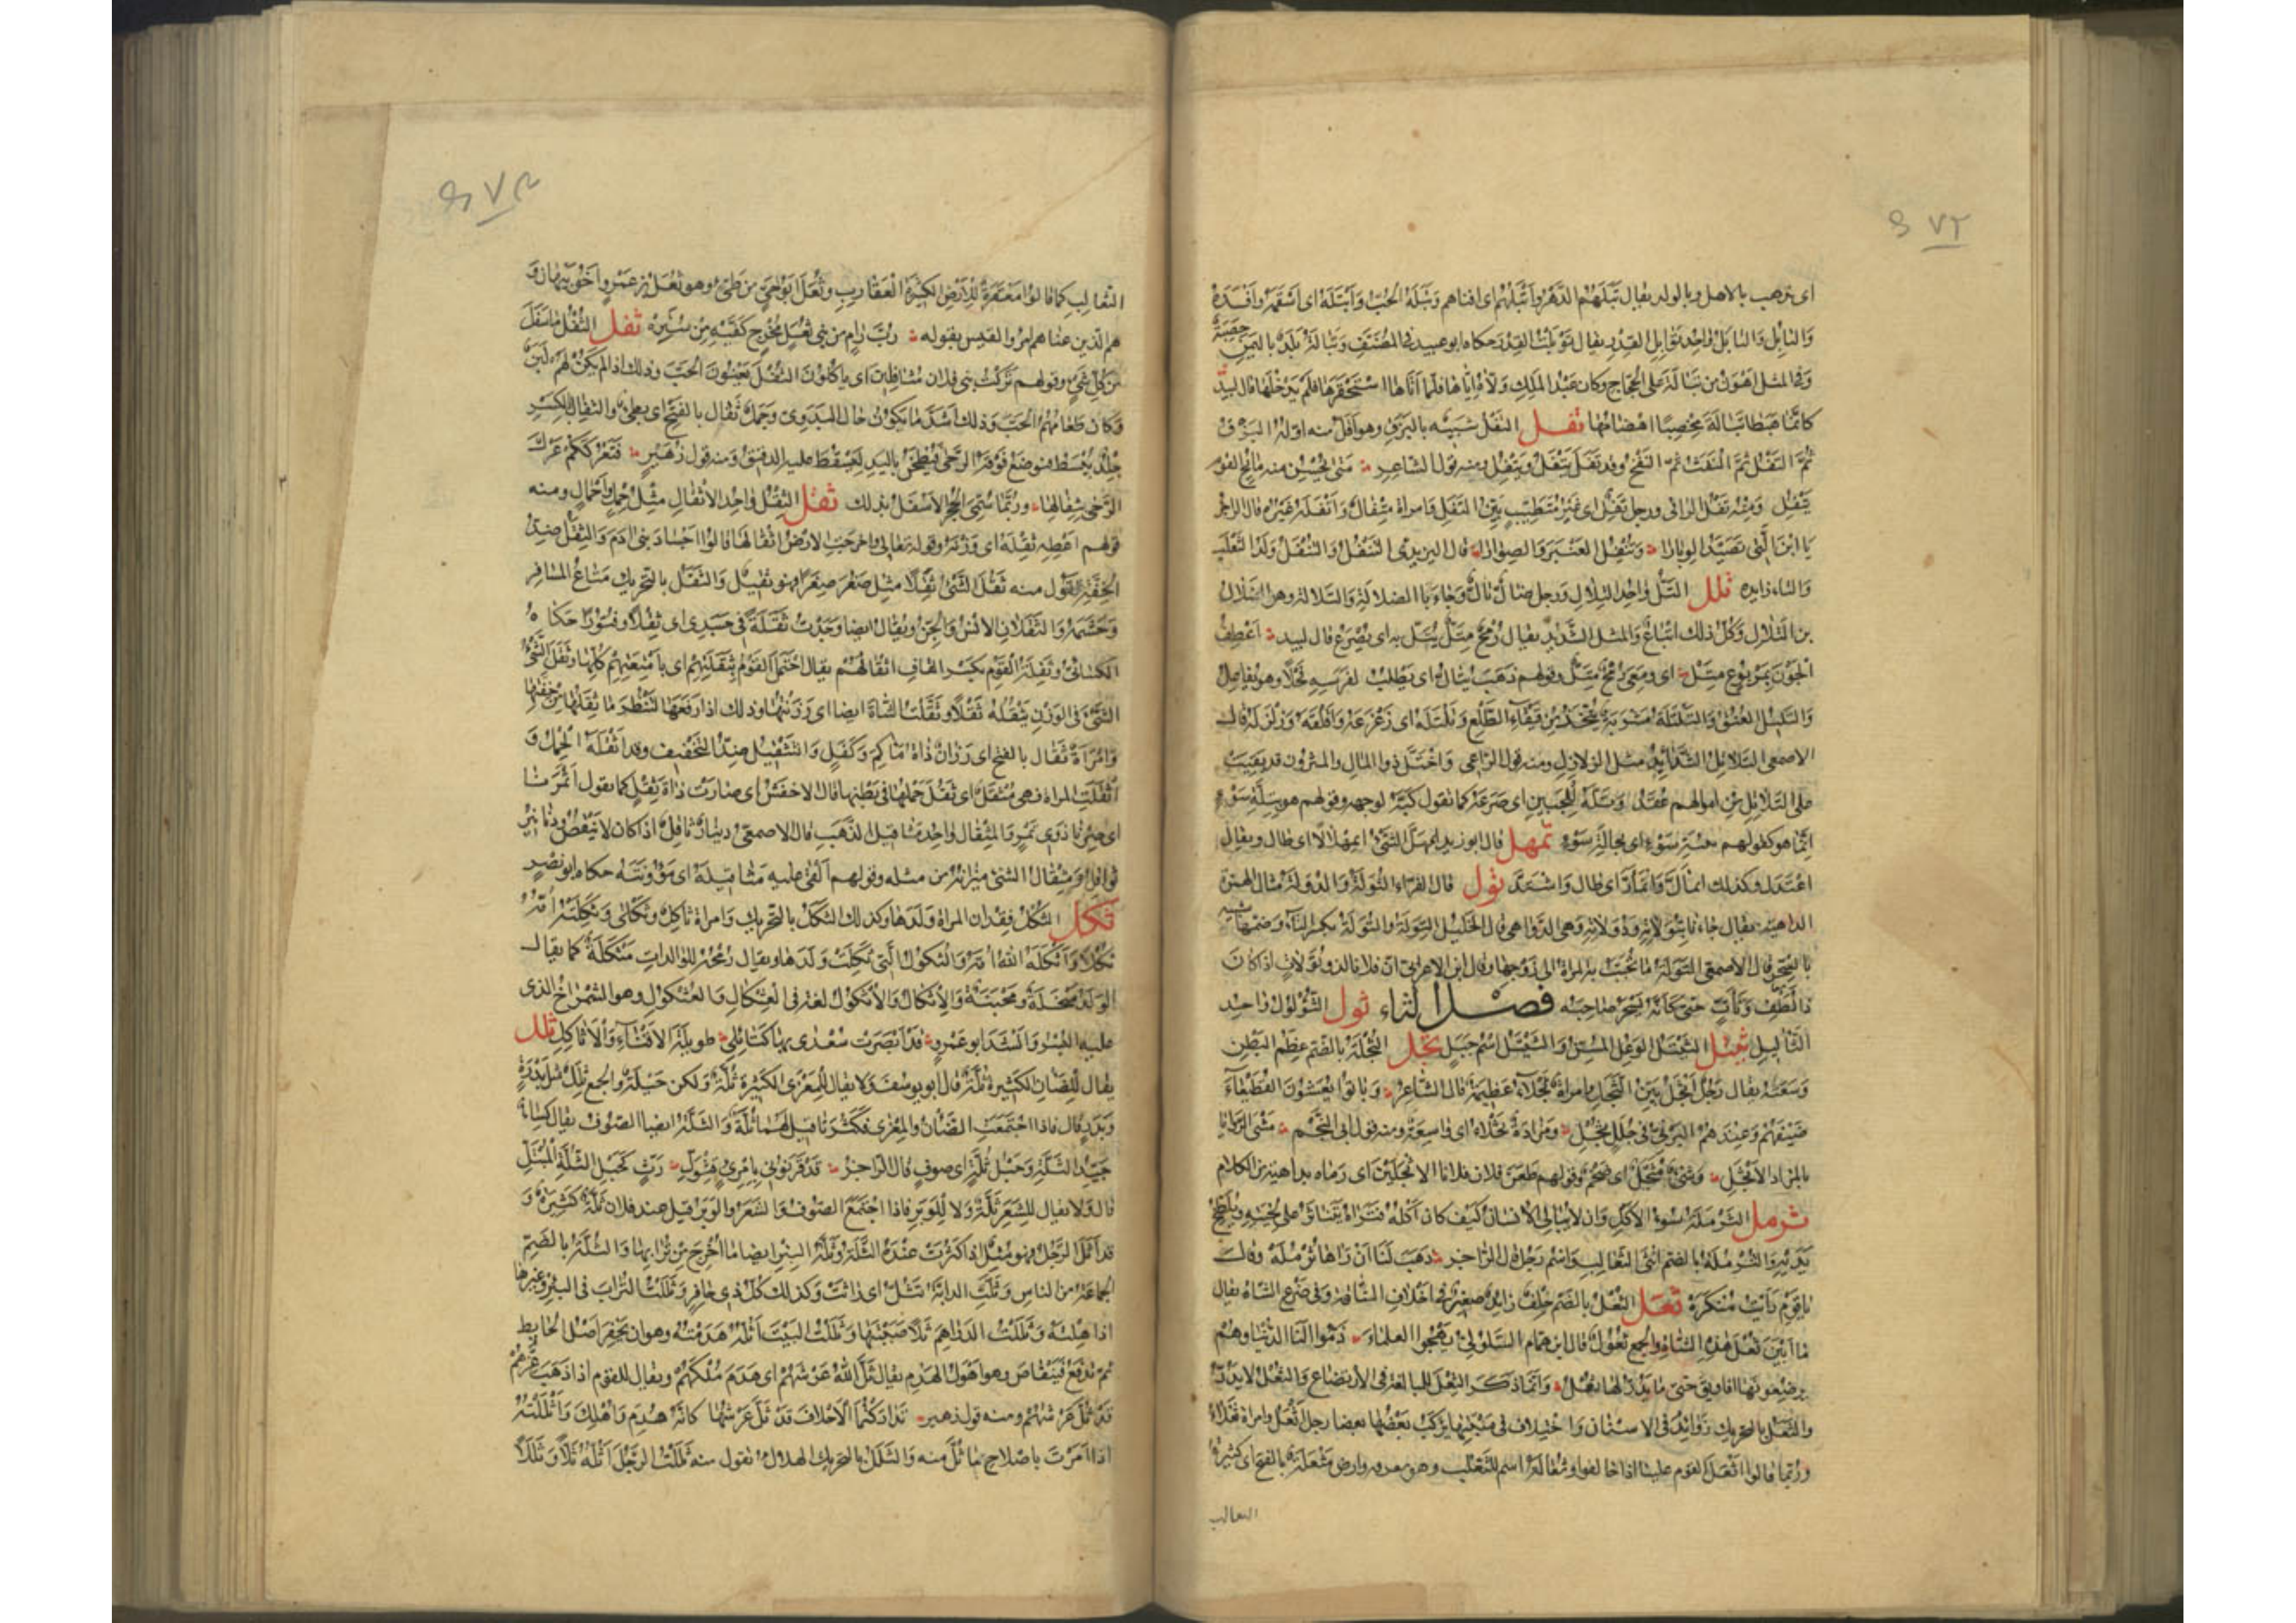 ٤٧٢
اى يذهب بالاهل وبالولد يقال تبلهم الدهر واتبلهم اى افناهم وتبله الحب واتبله اى اسقمه وافسده
والتابل والتابل واحد توابل القدر يقال توبلت القدر حكاه ابو عبيد فى المصنف وتبالة بلد باليمن خصبة
وفى المثل اهون من تبالة على الحجاج وكان عبد الملك ولاه اياها فلما اتاها استحقرها فلم يدخلها قال لبيد
كانما هبطا تبالة مخصبا اهضامها تفل التفل شبيه بالبزق وهو اقل منه اوله البزق
ثم التفل ثم النفث ثم النفخ وقد تفل يتفل ويتفل ومنه قول الشاعر متى يحس منه مائح القوم
يتفل ومنه تفل الراقى ورجل تفل اى غير متطيب بين التفل وامراة متفال واتفله غيره قال الراجز
يا ابن التى تصيد الوبارا وتتفل العنبر والصوارا قال اليزيدى التتفل والتتفل ولد الثعلب
والتاء زايدة تلل التل واحد التلال ورجل ضال تال وجاء بالضلالة والتلالة وهو الضلال
بن التلال وكل ذلك اتباع والمتل الشديد يقال رمح متل يتل به اى يصرع قال لبيد اعطف
الجون بمربوع متل اى ومعى رمح متل وقولهم ذهب يتال اى يطلب لفرسه فحلا وهو يفاعل
والتليل العنق والتلتلة مشربة تتخذ من قيقاء الطلع وتلتله اى زعزعه واقلقه وزلزله قال
الاصمعى التلاتل الشدايد مثل الزلازل ومنه قول الراعى واختل ذو المال والمثرون قد بقيت
على التلاتل من اموالهم عقد وتله للجبين اى صرعه كما تقول كبه لوجهه وقولهم هو بتلة سوء
انما هو كقولهم ببيئة سوء اى بحالة سوء تمهل قال ابو زيد اتمهل الشئ اتمهلالا اى طال ويقال
اعتدل وكذلك اتمال واتمار اى طال واشتد تول قال الفراء التولة والدولة مثال الهمزة
الداهية يقال جاء بتولاته ودولاته وهى الدواهى قال الخليل التولة والتولة بكسر التاء وضمها شبيه
بالسحر قال الاصمعى التولة ما تحبب به المراة الى زوجها وقال ابن الاعرابى ان فلانا لذو تولات اذا كان
ذا لطف وتات حتى كانه يسحر صاحبه فصل الثاء ثول الثؤلول واحد
الثاليل ثيتل الثيتل الوعل المسن والثيتل اسم جبل ثجل الثجلة بالضم عظم البطن
وسعته يقال رجل اثجل بين الثجل وامراة ثجلاء عظيمة قال الشاعر وباتوا يعشون القطيعاء
ضيفهم وعندهم البرنى فى جلل ثجل ومزادة ثجلاء اى واسعة ومنه قول ابى النجم مشى الروايا
بالمزاد الاثجل وشئ مثجل اى ضخم وقولهم طعن فلان فلانا الاثجلين اى رماه بداهية من الكلام
ثرمل الثرملة سوء الاكل وان لا يبالى الانسان كيف كان اكله فتراه يتناثر على لحيته ويلطخ
يديه والثرملة بالضم انثى الثعالب واسم رجل قال الراجز ذهب لنا ان راها ثرمله وقال
يا قوم رايت منكره ثعل الثعل بالضم خلف زايد صغير فى اخلاف الناقة وفى ضرع الشاة يقال
ما ابين ثعل هذه الشاة والجمع ثعول قال ابن همام السلولى يهجو العلماء ذموا لنا الدنيا وهم
يرضعونها افاويق حتى ما يدر لها ثعل وانما ذكر الثعل للمبالغة فى الارتضاع والثعل لا يدر
والثعل بالتحريك زوائد فى الاسنان واختلاف فى منبتها يركب بعضها بعضا رجل اثعل وامراة ثعلاء
وربما قالوا اثعل القوم علينا اذا خالفوا وثعالة اسم للثعلب وهو معرفة وارض مثعلة بالفتح اى كثيرة
الثعالب
٤٧٣
الثعالب كما قالوا معقرة للارض الكثيرة العقارب وثعل ابو حى من طئ وهو ثعل بن عمرو اخو نبهان و
هم الذين عناهم امرؤ القيس بقوله رب رام من بنى ثعل مخرج كفيه من ستره ثفل الثفل ما سفل
من كل شئ وقولهم تركت بنى فلان مثافلين اى ياكلون الثفل يعنون الحب وذلك اذا لم يكن لهم لبن
وكان طعامهم الحب وذلك اشد ما يكون حال البدوى وجمل ثفال بالفتح اى بطئ والثفال بالكسر
جلد يبسط فتوضع فوقه الرحى فيطحن باليد ليسقط عليه الدقيق ومنه قول زهير فتعرككم عرك
الرحى بثفالها وربما سمى الحجر الاسفل بذلك ثقل الثقل واحد الاثقال مثل حمل واحمال ومنه
قولهم اعطه ثقله اى وزنه وقوله تعالى واخرجت الارض اثقالها قالوا اجساد بنى ادم والثقل ضد
الخفة تقول منه ثقل الشئ ثقلا مثل صغر صغرا فهو ثقيل والثقل بالتحريك متاع المسافر
وحشمه والثقلان الانس والجن ويقال ايضا وجدت ثقلة فى جسدى اى ثقلا وفتورا حكاه
الكسائى وثقلة القوم بكسر القاف اثقالهم يقال احتمل القوم بثقلتهم اى بامتعتهم كلها وثقل الشئ
الشئ فى الوزن يثقله ثقلا وثقلت الشاة ايضا اى وزنتها وذلك اذا رفعتها لتنظر ما ثقلها من خفتها
وامراة ثقال بالفتح اى رزان ذات ماكم وكفل والتثقيل ضد التخفيف وقد اثقله الحمل و
اثقلت المراة فهى مثقل اى ثقل حملها فى بطنها قال الاخفش اى صارت ذات ثقل كما تقول اتمرنا
اى صرنا ذوى تمر والمثقال واحد مثاقيل الذهب قال الاصمعى دينار ثاقل اذا كان لا ينقص ودنانير
ثواقل ومثقال الشئ ميزانه من مثله وقولهم القى عليه مثاقيله اى مؤونته حكاه ابو نصر
ثكل الثكل فقدان المراة ولدها وكذلك الثكل بالتحريك وامراة ثاكل وثكلى وثكلته امه
ثكلا واثكله الله امه والثكول التى ثكلت ولدها ويقال رمحه للوالدات مثكلة كما يقال
الولد مبخلة ومجبنة والاثكال والاثكول لغة فى العثكال والعثكول وهو الشمراخ الذى
عليه البسر وانشد ابو عمرو قد ابصرت سعدى بها كتائلى طويلة الاقناء والاثاكل ثلل
يقال للضان الكثيرة ثلة قال ابو يوسف ولا يقال للمعزى الكثيرة ثلة ولكن حيلة والجمع ثلل مثل بدرة
وبدر قال فاذا اجتمعت الضان والمعزى فكثرتا قيل لهما ثلة والثلة ايضا الصوف يقال كساء
جيد الثلة وحبل ثلة اى صوف قال الراجز قد قرنونى بامرئ قثول رث كحبل الثلة المبتل
قال ولا يقال للشعر ثلة ولا للوبر فاذا اجتمع الصوف والشعر والوبر قيل عند فلان ثلة كثيرة و
قد اثل الرجل فهو مثل اذا كثرت عنده الثلة وثلة البئر ايضا ما اخرج من ترابها والثلة بالضم
الجماعة من الناس وثلت الدابة تثل اى راثت وكذلك كل ذى حافر وثللت التراب فى البئر وغيرها
اذا هلته وثللت الدراهم ثلا صببتها وثللت البيت اثله هدمته وهو ان تحفر اصل الحايط
ثم تدفع فينقاض وهو اهول الهدم يقال ثل الله عرشهم اى هدم ملكهم ويقال للقوم اذا ذهب عزهم
قد ثل عرشهم ومنه قول زهير تداركتما الاحلاف قد ثل عرشها كانه هدم واهلك واثللته
اذا امرت باصلاح ما ثل منه والثلل بالتحريك الهلاك تقول منه ثللت الرجل اثله ثلا وثللا